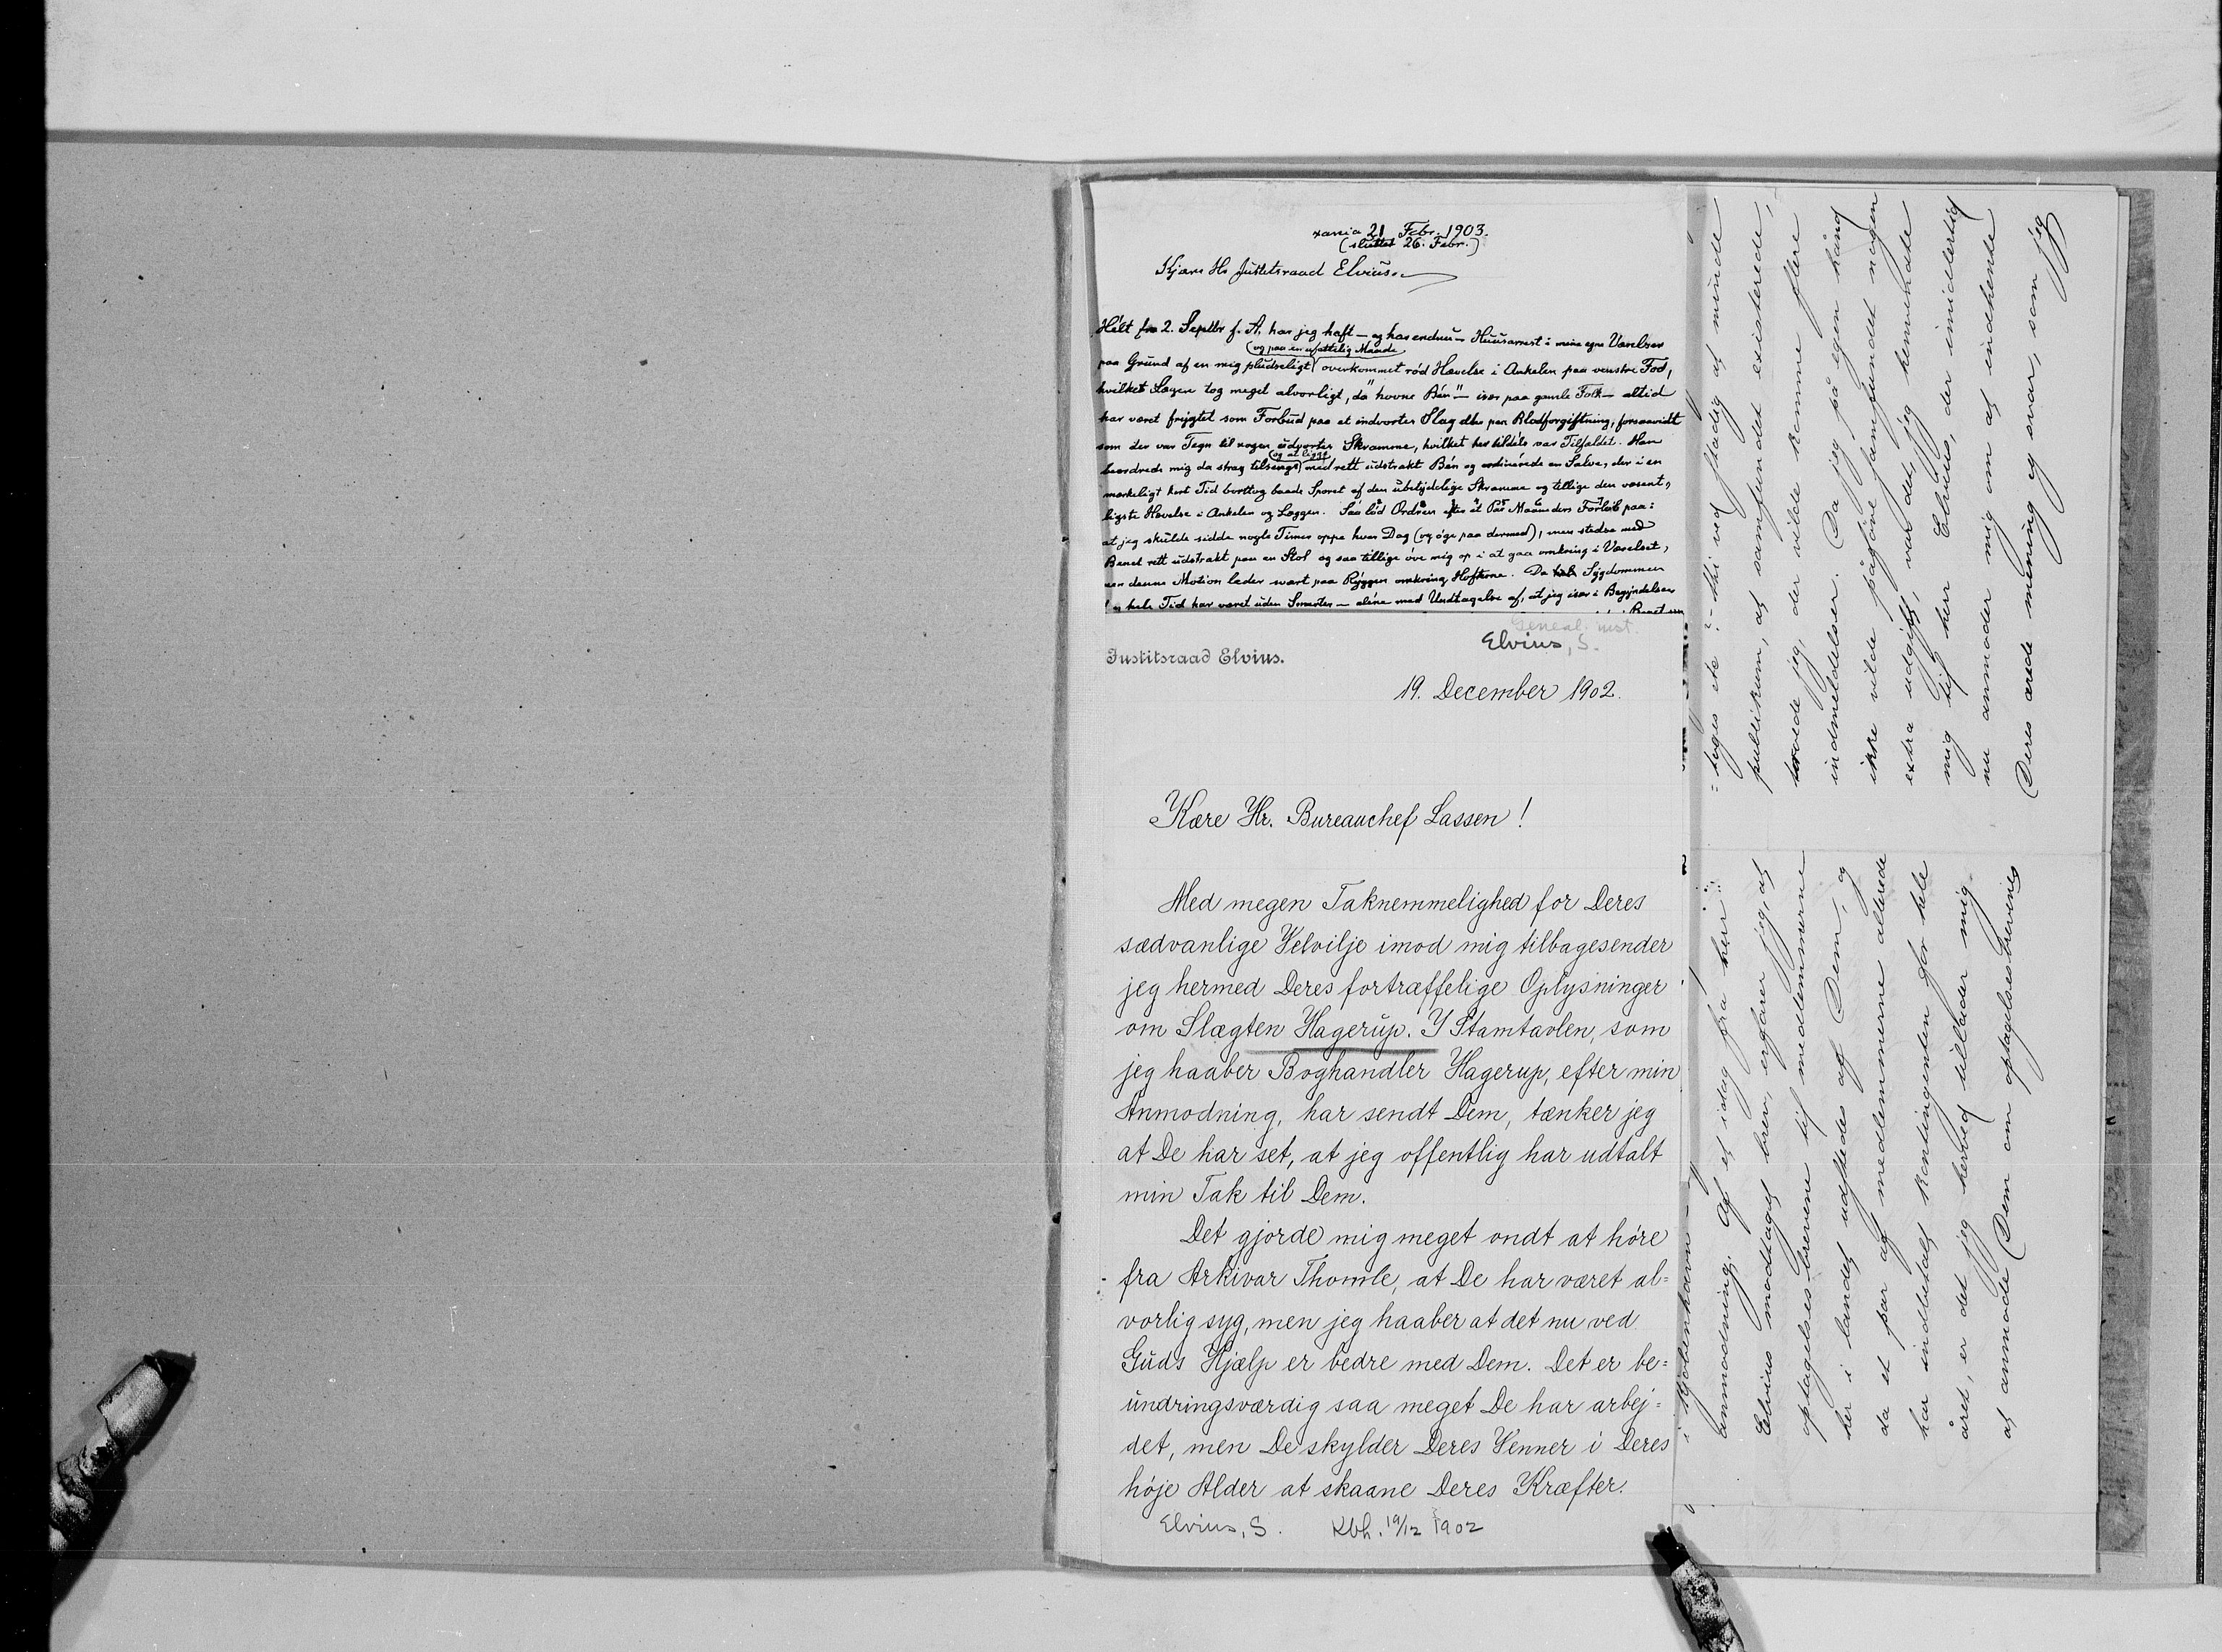 xania 21 Febr. 1903.
(sluttet 26. Febr.)
Kjære Hr Justitsraad Elvius.
Hélt fra 2. Septbr f. A. har jeg haft — og har endnu — Huusarrest i mine egne Værelser
(og paa en ufattelig Maade
paa Grund af en mig pludseligt overkommet ród Hævelse i Ankelen paa venstre Fod,
hvilket Lægen tog meget alvorligt, da "hovne Bén" — især paa gamle Folk — altid
har været frygtet som Forbud paa et indvortes Slag eller paa Blodforgiftning, forsaavidt
som der var Tegn til nogen udvortes Skramme, hvilket her tildéls var Tilfældet. Han
(og at ligge)
beordrede mig da strax tilsengs med rett udstrakt Bén og ordinérede en Salve, der i en
mærkeligt kort Tid borttog baade Sporet af den ubetydelige Skramme og tillige den væsent,
ligste Hævelse i Ankelen og Læggen. Saa lód Ordren efter et Par Maaneders Forlób paa:
at jeg skulde sidde nogle Timer oppe hver Dag (og óge paa dermed), men stedse med
Benet rett udstrakt paa en Stol og saa tillige óve mig op i at gaa omkring i Værelset,
men denne Motion leder svært paa Ryggen omkring Hofterne. Da Sygdommen
hele Tid har været uden Smerter — aléne med Undtagelse af, at jeg især i Begyndelsen
Geneal. inst.
Elvius, S.
Justitsraad Elvius.
19. December 1902.
Kære Hr. Bureauchef Lassen!
Med megen Taknemmelighed for Deres
sædvanlige Velvilje imod mig tilbagesender
jeg hermed Deres fortræffelige Oplysninger
om Slægten Hagerup. I Stamtavlen, som
jeg haaber Boghandler Hagerup, efter min
Anmodning, har sendt Dem, tænker jeg
at De har set, at jeg offentlig har udtalt
min Tak til Dem.
Det gjorde mig meget ondt at høre
fra Arkivar Thomle, at De har været al=
vorlig syg, men jeg haaber at det nu ved
Guds Hjælp er bedre med Dem. Det er be=
undringsværdig saa meget De har arbej=
det, men De skylder Deres Venner i Deres
høje Alder at skaane Deres Kræfter.
Elvius, S. Kbh. 19/12 1902
i Kjøbenhavn —
anmodning. Af et idag fra herr
Elvius modtaget brev, erfarer jeg, at
optagelses-brevene til medlemmerne
her i landet udstedes af Dem, og
da et par af medlemmerne allerede
har indbetalt kontingenten for hele
året, er det jeg herved tillader mig
at anmode Dem om optagelsesbrevings
=toges etc ? - thi ved stadig at minde
publikum, at samfundet existerede,
troede jeg, der vilde komme flere
indmeldelser. Da jeg på egen hånd
ikke vilde påføre samfundet nogen
extra udgift, var det, jeg henvendte
mig til herr Elvius, der imidlertid
nu anmoder mig om at indhente
Deres ærede mening og svar, som jeg